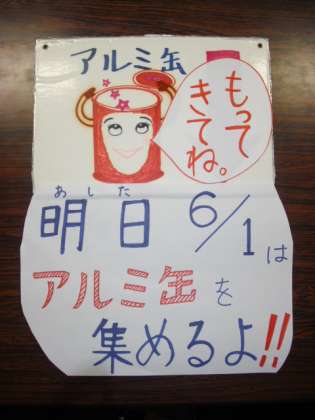 アルミ缶
もって
きてね。
あした
明日 6/1は
アルミ缶を
集めるよ!!